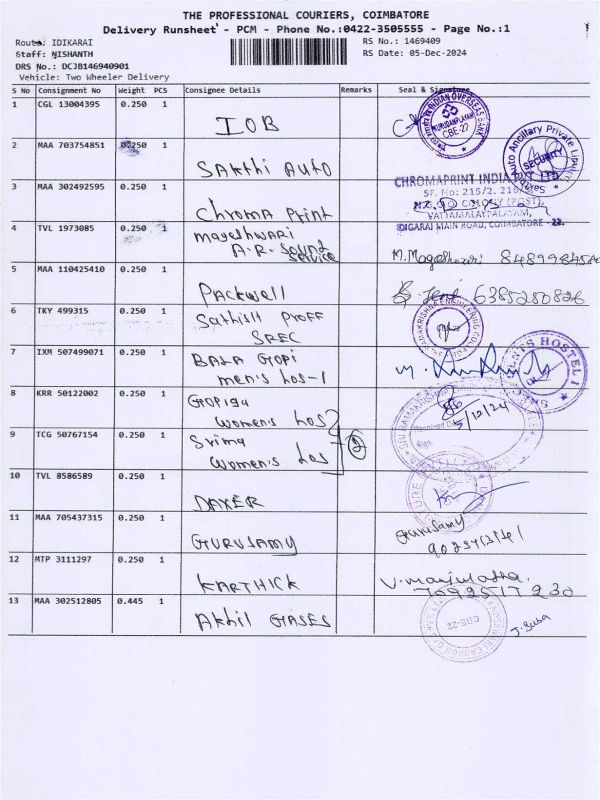 THE PROFESSIONAL COURIERS, COIMBATORE
Delivery Runsheet - PCM - Phone No.:0422-3505555 - Page No.:1
Route: IDIKARAI
RS No.: 1469409
Staff: NISHANTH
RS Date: 05-Dec-2024
DRS No.: DCJB146940901
Vehicle: Two Wheeler Delivery
S No Consignment No Weight PCS Consignee Details Remarks Seal & Signature
1 CGL 13004395 0.250 1 IOB
INDIAN OVERSEAS BANK
CBE-22
2 MAA 703754851 0.250 1 Sakthi Auto
Auto Ancillary Private Limited
SECURITY
3 MAA 302492595 1 Chroma Print
CHROMAPRINT INDIA PVT LTD
SF. No: 215/2, 216
COLONY (POST),
VATTAMALAYPALAYAM,
IDIGARAI MAIN ROAD, COIMBATORE - 22.
4 TVL 1973085 0.250 1 mageshwari
A.R. Sound
Service
M.Mageshwari
5 MAA 110425410 0.250 1 Packwell
6385250826
6 TKY 499315 0.250 1 Sathish Proff
SREC
7 IXM 507499071 0.250 1 Bala Gopi
men's Hos-1
HOSTEL I
8 KRR 50122002 0.250 1 Gopiga
Women's Hos
5/12/24
9 TCG 50767154 0.250 1 Srima
Women's Hos
2
10 TVL 8586589 0.250 1
11 MAA 705437315 0.250 1 GURUSAMY
Gurusamy
12 MTP 3111297 0.250 1 KARTHICK
V.manjulatha.
13 MAA 302512805 0.445 1 Akhil GASES
CBE-22
J. Susa